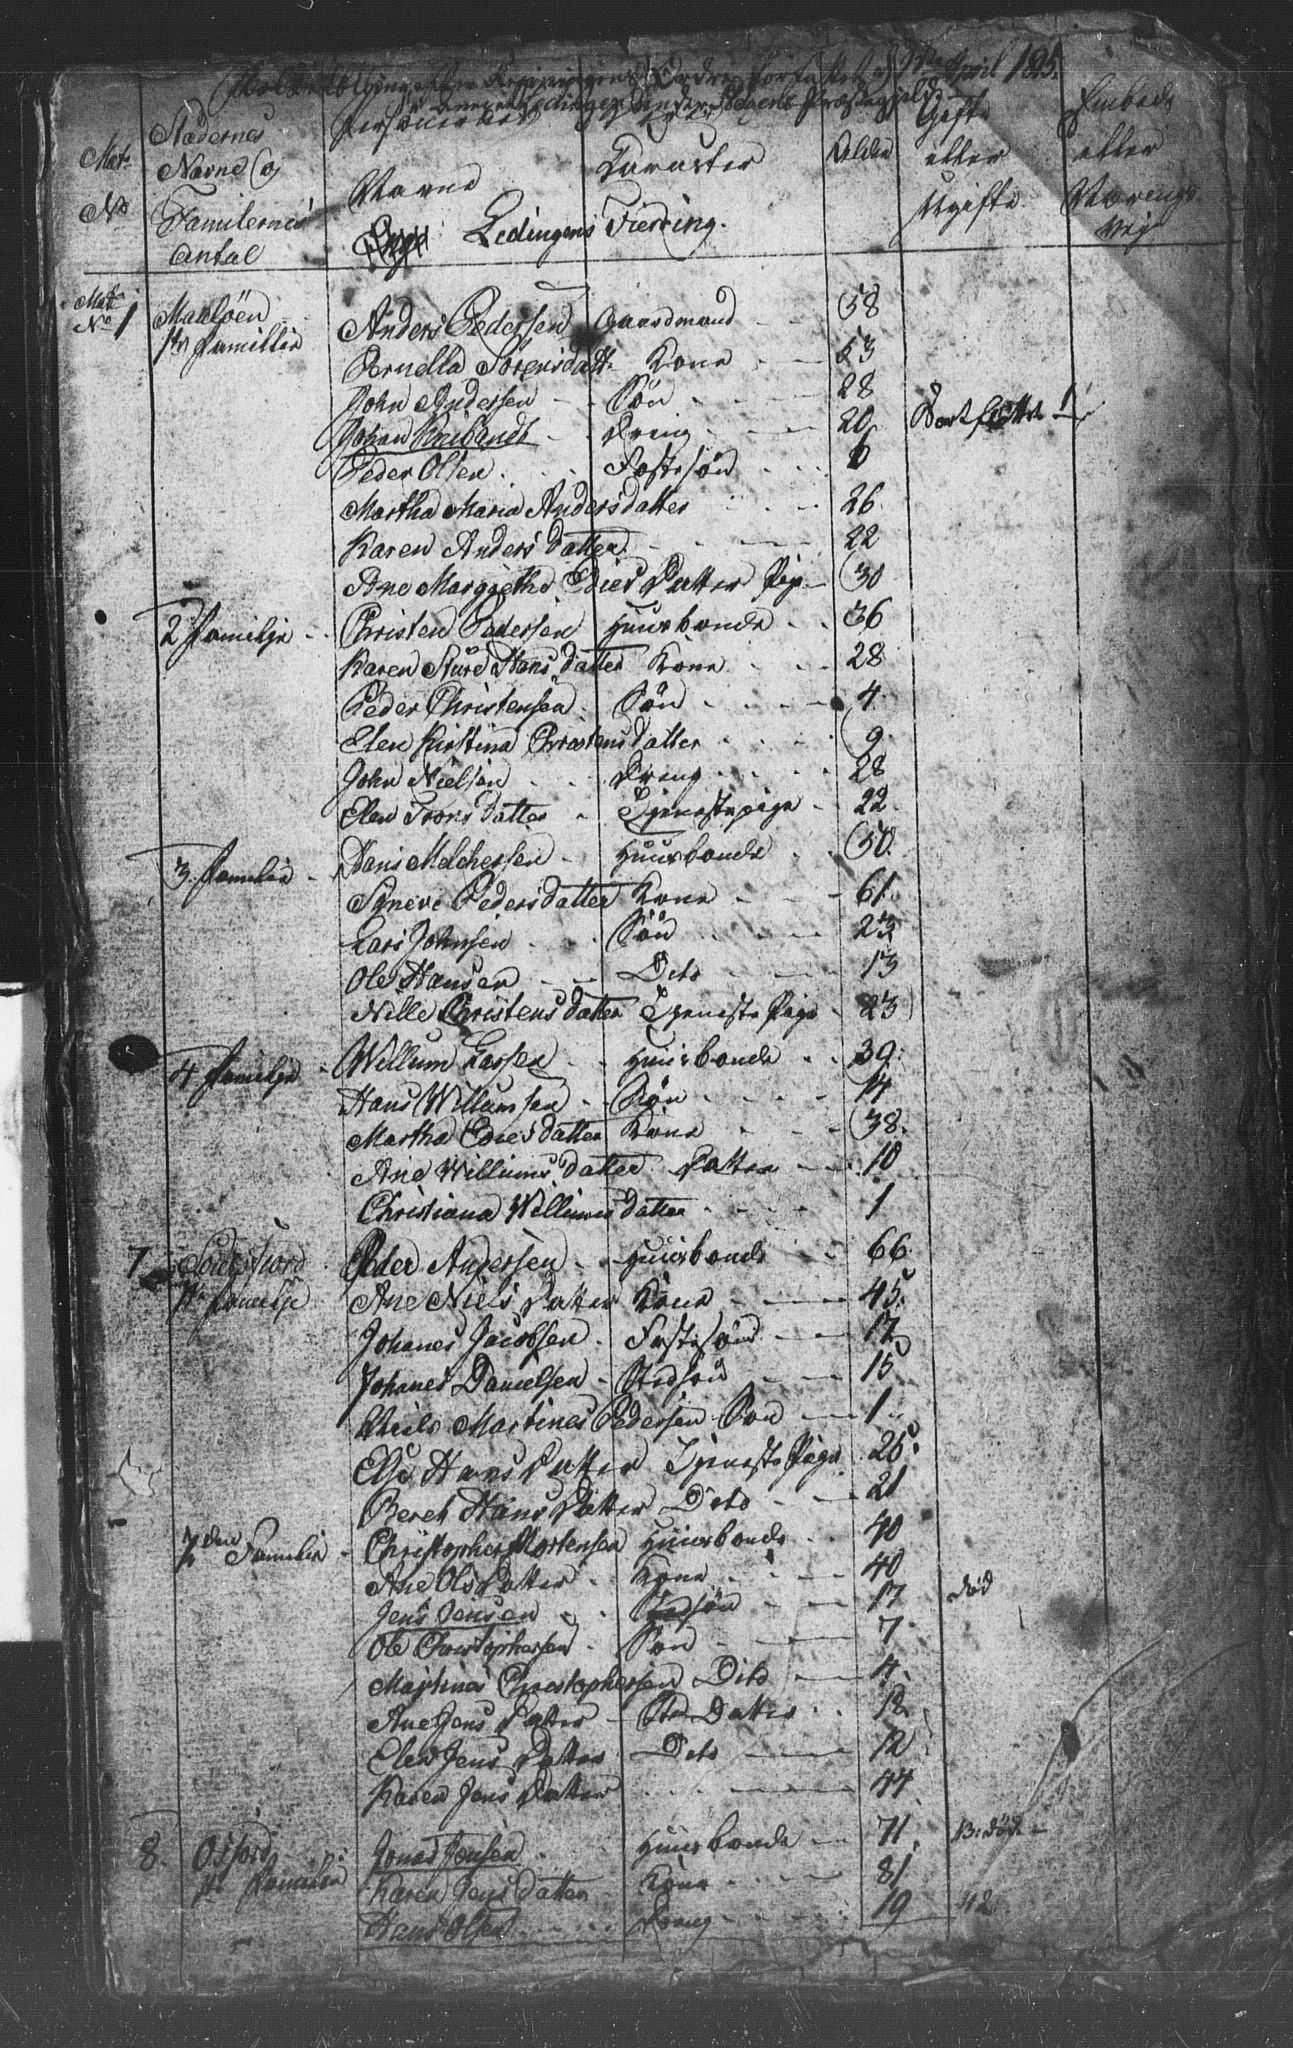 April 1825
Mat. No
Stædernes Navne og Familiernes Antal
Personernes Navne
Caracter
Alder
Gifte eller Ugifte
Embede eller Nærings Vej
Ledingens Fierring.
Mat: No 1 Maaløen
1te Familie
Anders Pedersen Gaardmand 58
Pernella Sørensdatt. Kone 53
John Andersen Søn 28
Johan Dreng 20 Bortfløtt
Peder Olsen Fostesøn
Martha Maria Andersdatter 26
Karen Anders datter 22
Ane Margrethe Edies Datter Pige 30
2 Familie Christen Pedersen Huusbonde 36
Karen Sture Hans datter Kone 28
Peder Christensen Søn 4
Elen Kirstina Christensdatter 9
John Nielsen Dreng 28
Elen Trons datter Tjenestepige 22
3 Familie Hans Melchersen Huusbonde 50
Synevé Pedersdatter Kone 61
Lars Johnsen Søn 23
Ole Hansen Dito 13
Nille Christens datter Tjeneste Pige 23
4 Familje Willum Larsen Huusbonde 39
Hans Willumsen Søn 14
Martha Edies datter Kone 38
Ane Willums datter Datter 10
Christiana Willums datter 1
7 fiord Peder Andersen Huusbonde 66
1te Familje Ane Niels Datter Kone 45
Johanes Jacobsen Fostesøn 17
Johanes Danielsen Stedsøn 15
Niels Martines Pedersen Søn 1
Else Hans Datter Tjeneste Pige 25
Beret Hans Datter Dito 21
2den Familie Christopher Mortensen Huusbonde 40
Ane Ols Datter Kone 40
Jens Jensen Stedsøn 17 død
Ole Christophersen Søn 7
Martines Christophersen Dito 4
Ane Jens Datter Sted Datter 18
Elen Jens Datter Dito 12
Karen Jens Datter 44
8 Osfiord Jonas Jonsen Huusbonde 71 død
1te Familie Karen Jens datter Kone 81
Hans Olsen Dreng 19 42